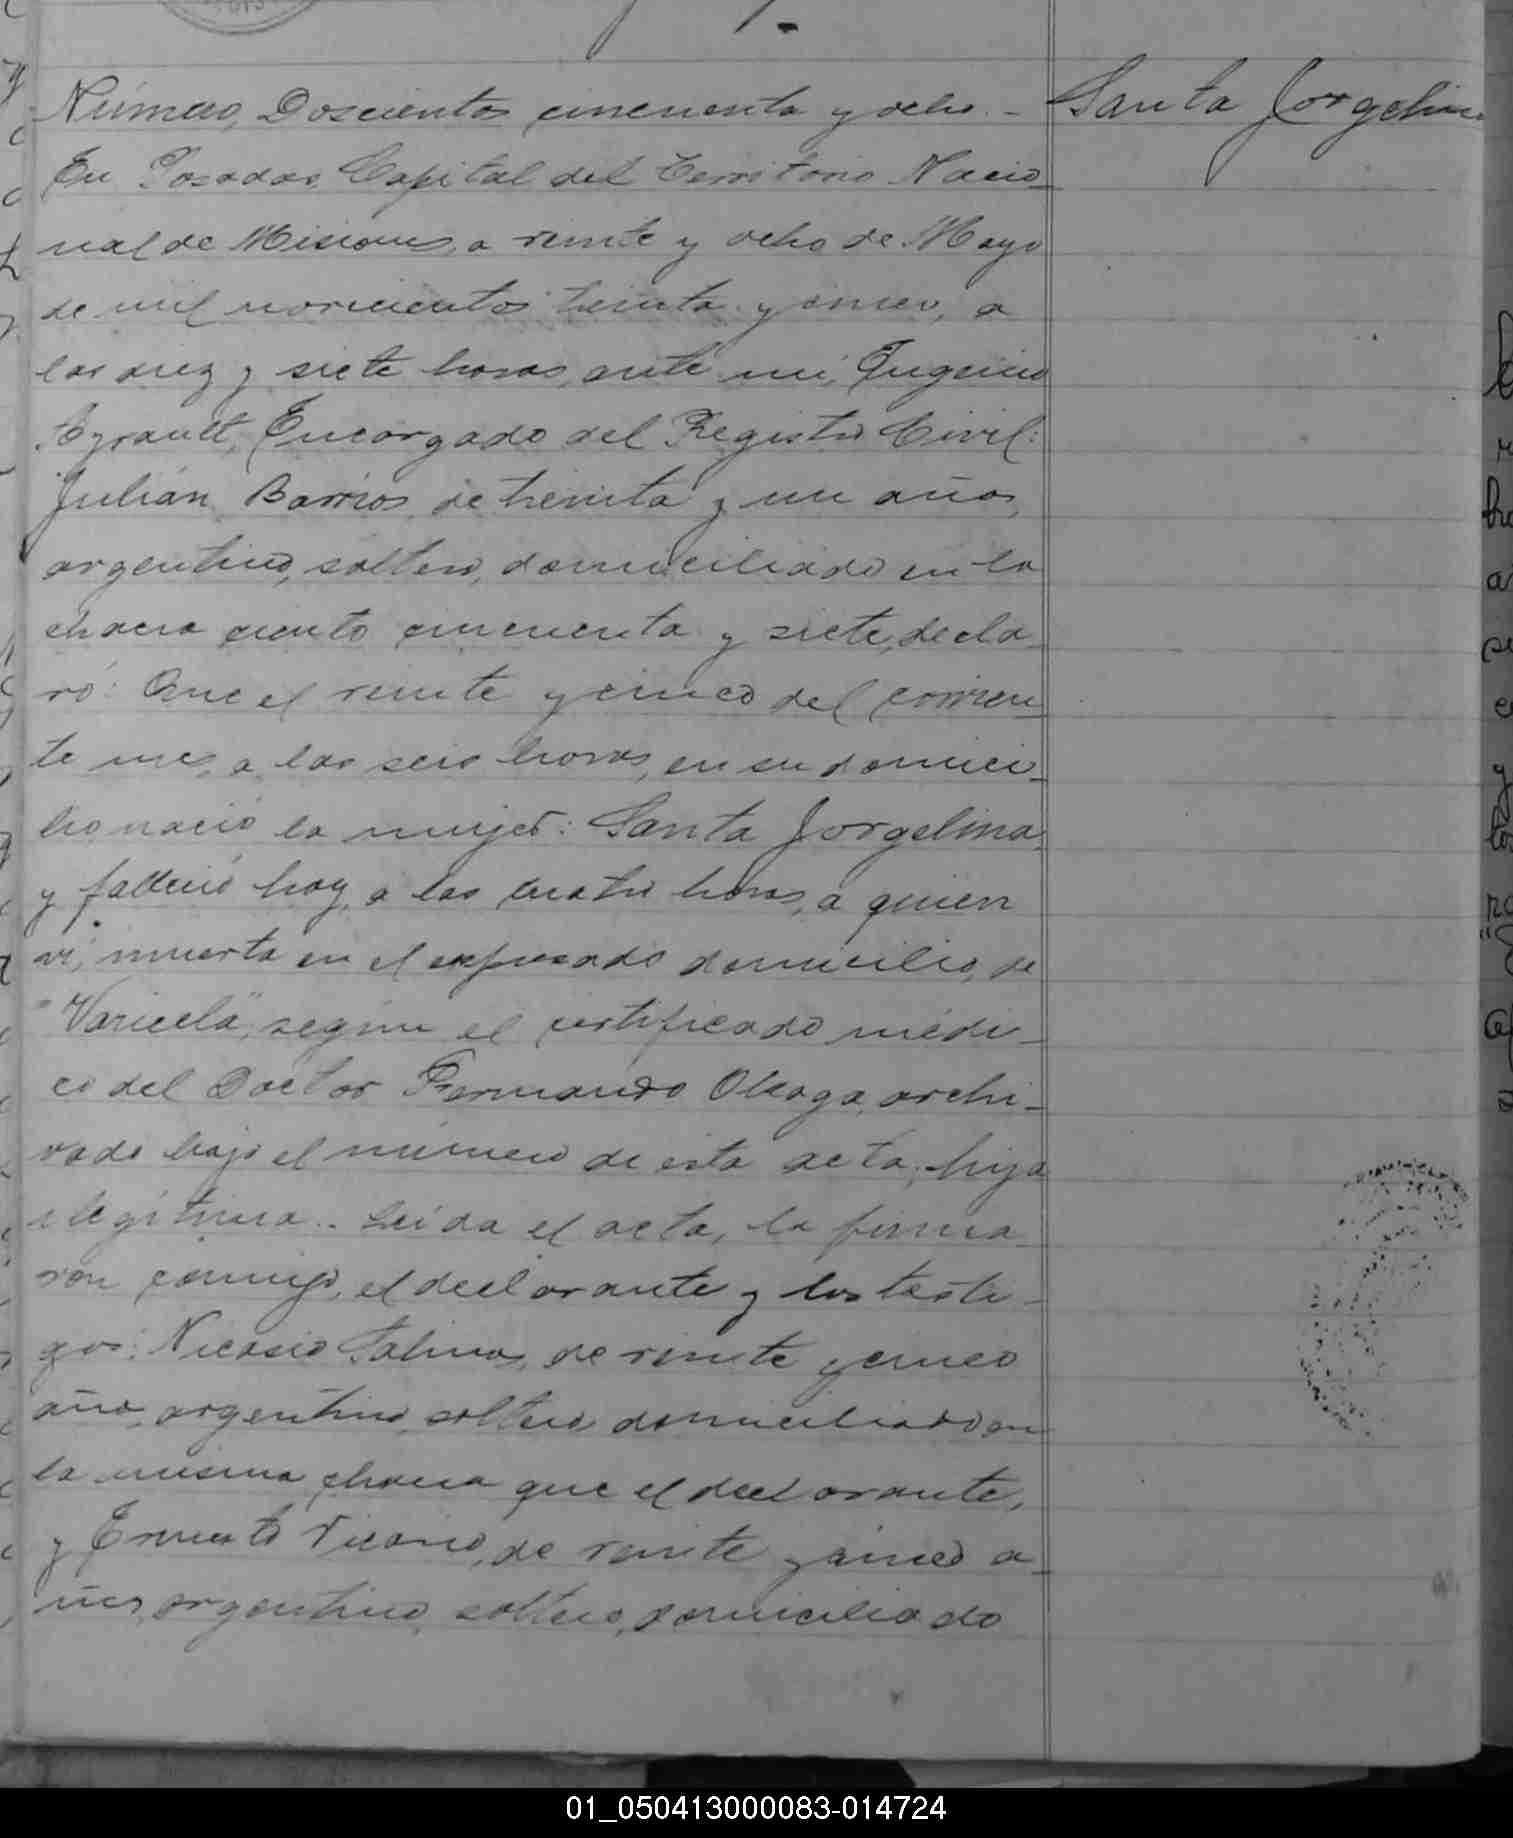 Número, Doscientos cincuenta y ocho. - Santa Jorgelina
En Posadas Capital del Territorio Nacio-
nal de Misiones, a veinte y ocho de Mayo
de mil novecientos treinta y cinco, a
las diez y siete horas, ante mi, Eugenio
Ayrault, Encargado del Registro Civil:
Julián Barrios, de treinta y un años,
argentino, soltero, domiciliado en la
chacra ciento cincuenta y siete, decla-
ró: Que el veinte y cinco del corrien-
te mes, a las seis horas, en su domici-
lio nació la mujer: Santa Jorgelina,
y falleció hoy, a las cuatro horas, a quien
ví, muerta en el expresado domicilio, de
"Varicela", según el certificado médi-
co del Doctor Fernando Oleaga, archi-
vado bajo el número de esta acta; hija
ilegítima.. Leída el acta, la firma
ron conmigo, el declarante y los testi-
gos: Nicasio Salinas, de veinte y cinco
años, argentino, soltero domiciliado en
la misma chacra que el declarante,
y Ernesto Vicario, de veinte y cinco a-
ños, argentino, soltero, domiciliado
01_050413000083-014724